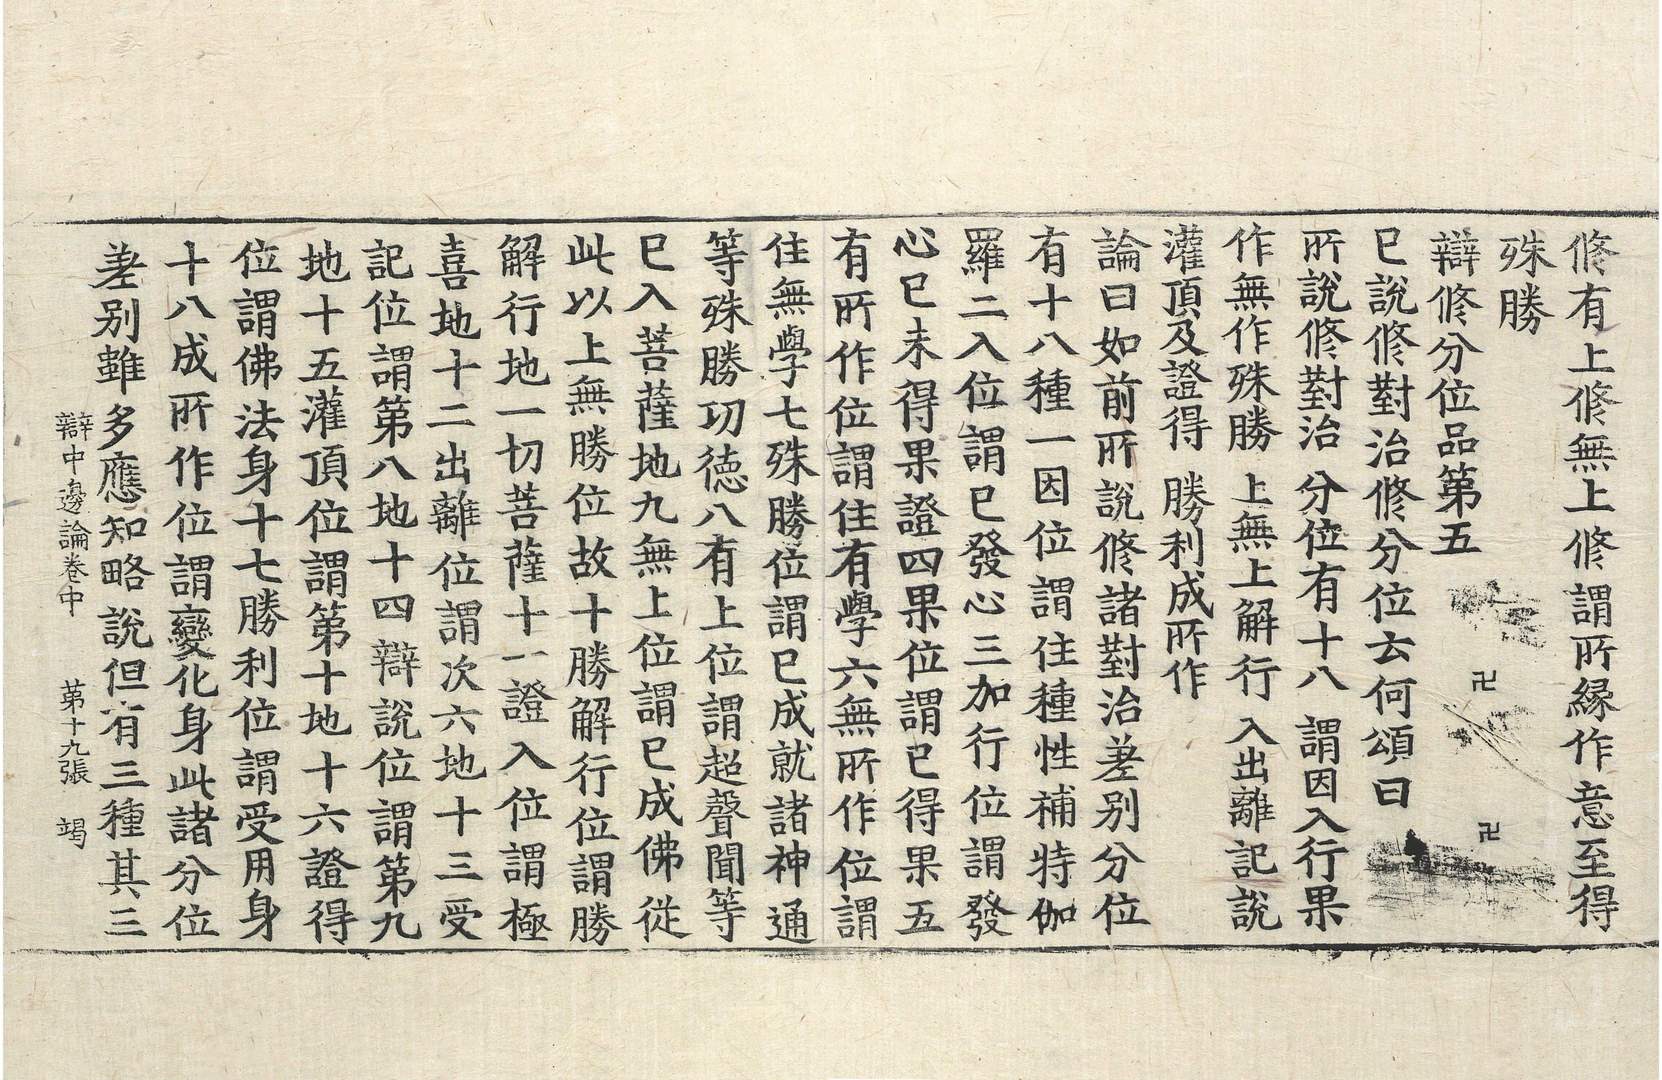 修有上修無上修謂所緣作意至得
殊勝
辯修分位品第五
卍
卍
已說修對治修分位云何頌曰
所說修對治 分位有十八 謂因入行果
作無作殊勝 上無上解行 入出離記說
灌頂及證得 勝利成所作
論曰如前所說修諸對治差別分位
有十八種一因位謂住種性補特伽
羅二入位謂已發心三加行位謂發
心已未得果證四果位謂已得果五
有所作位謂住有學六無所作位謂
住無學七殊勝位謂已成就諸神通
等殊勝功德八有上位謂超聲聞等
已入菩薩地九無上位謂已成佛從
此以上無勝位故十勝解行位謂勝
解行地一切菩薩十一證入位謂極
喜地十二出離位謂次六地十三受
記位謂第八地十四辯說位謂第九
地十五灌頂位謂第十地十六證得
位謂佛法身十七勝利位謂受用身
十八成所作位謂變化身此諸分位
差別雖多應知略說但有三種其三
辯中邊論卷中 第十九張 竭